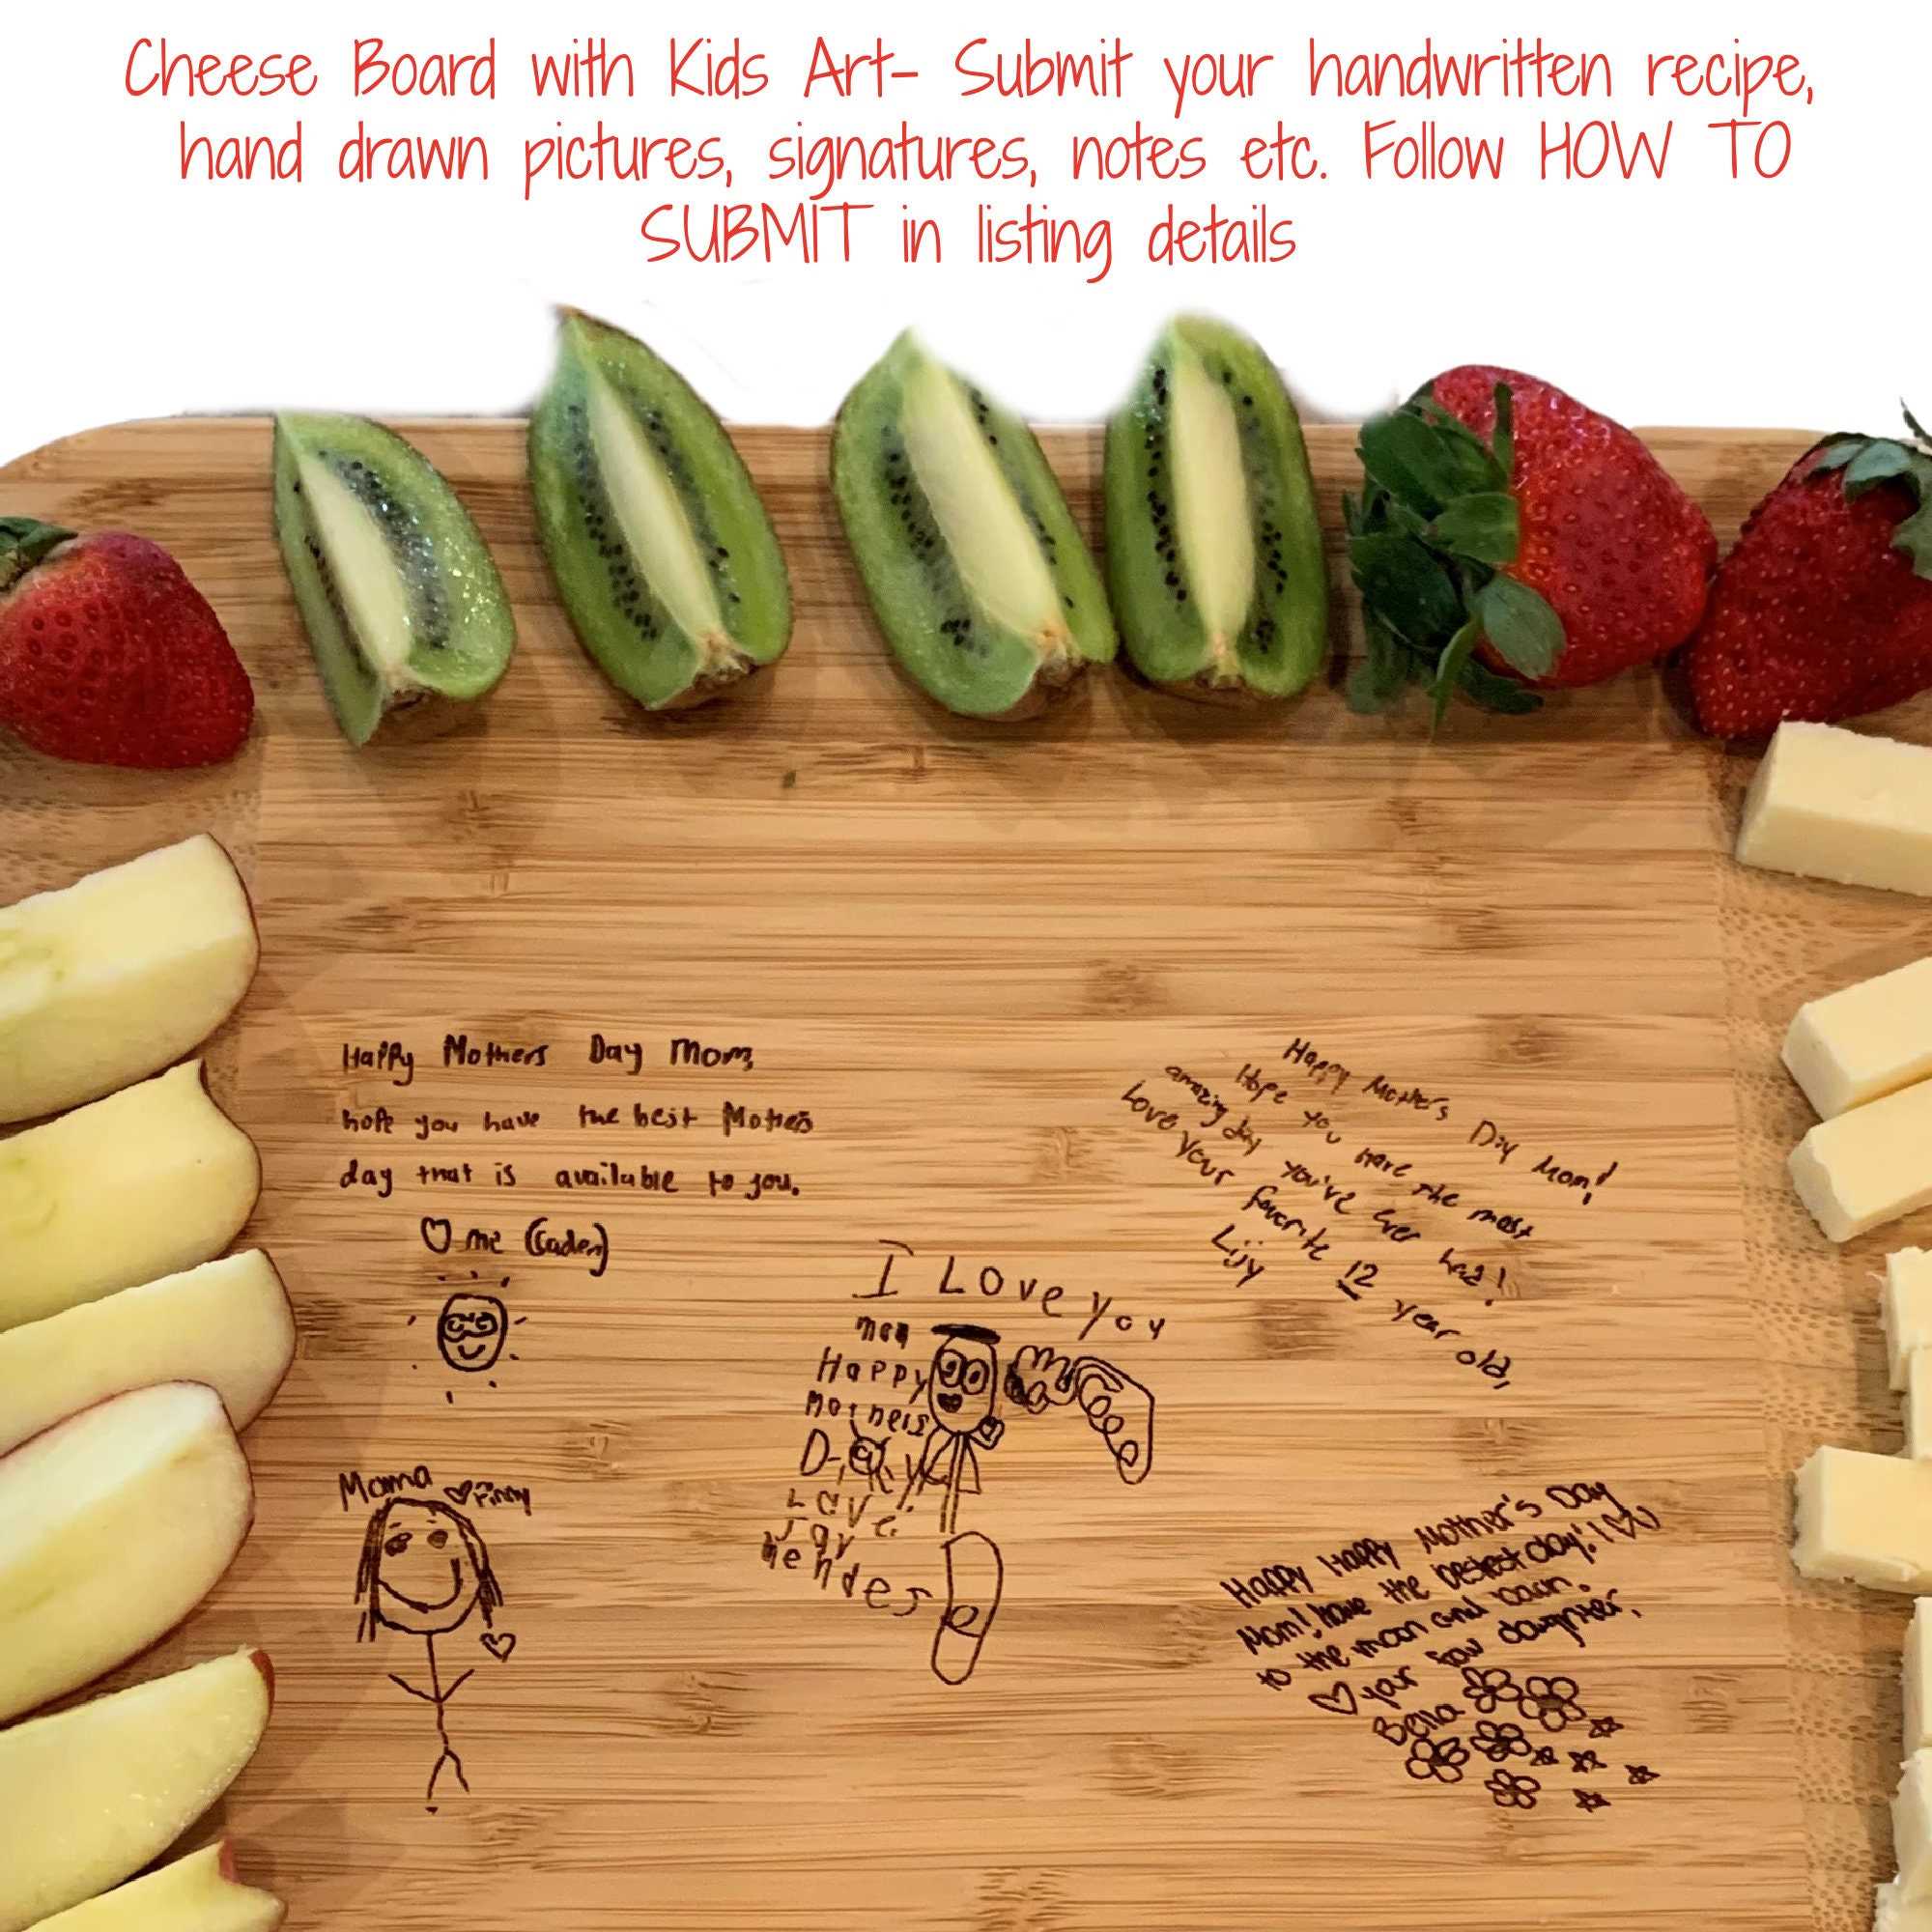 Cheese Board with Kids Art- Submit your handwritten recipe,
hand drawn pictures, signatures, notes etc. Follow HOW TO
SUBMIT in listing details
Happy Mothers Day Mom,
hope you have the best Mothers
day that is available to you.
♡ me (Caden)
Happy Mother's Day Mom!
Hope you have the most
amazing day you've ever had!
Love your favorite 12 year old,
I Love you
mom
Happy
mothers
Day
Love!
Mama ♡ Finny
Happy Happy Mother's Day
Mom! have the bestest day!!
to the moon and back.
♡ your fav daughter,
Bella